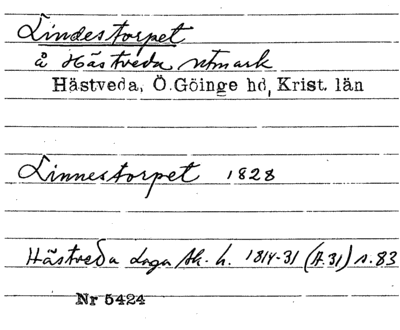 Lindestorpet
å Hästveda utmark
Hästveda, Ö.Göinge hd, Krist. län
Linnestorpet 1828
Hästveda Laga sk. h. 1814-31 (A.31) s. 83
Nr 5424